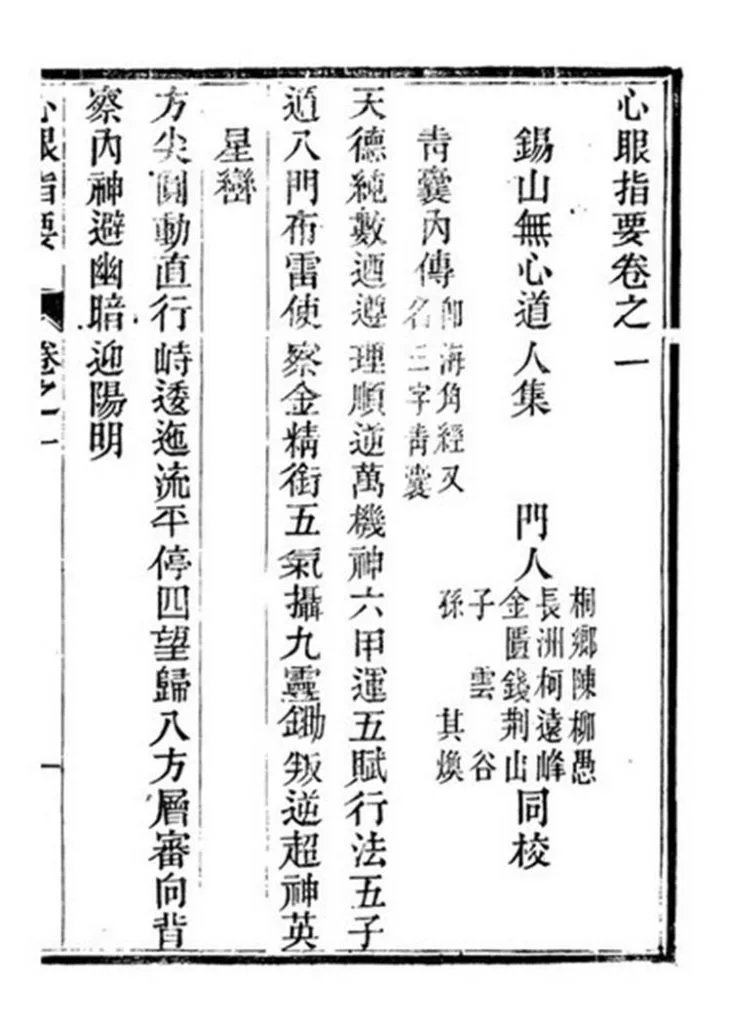 心眼指要卷之一
錫山無心道人集　門人
桐鄉陳柳愚
長洲柯遠峰
金匱錢荆山
子　雲谷
孫　其煥
同梭
青囊內傳
卽海角經又
名三字青囊
天德純數迺遵理順逆萬機神六甲運五賦行法五子
遁八門布雷使察金精銜五氣攝九靈鋤叛逆超神英
星巒
方尖圓動直行峙逶迤流平停四望歸八方層審向背
察內神避幽暗迎陽明
心眼指要
卷之一
一